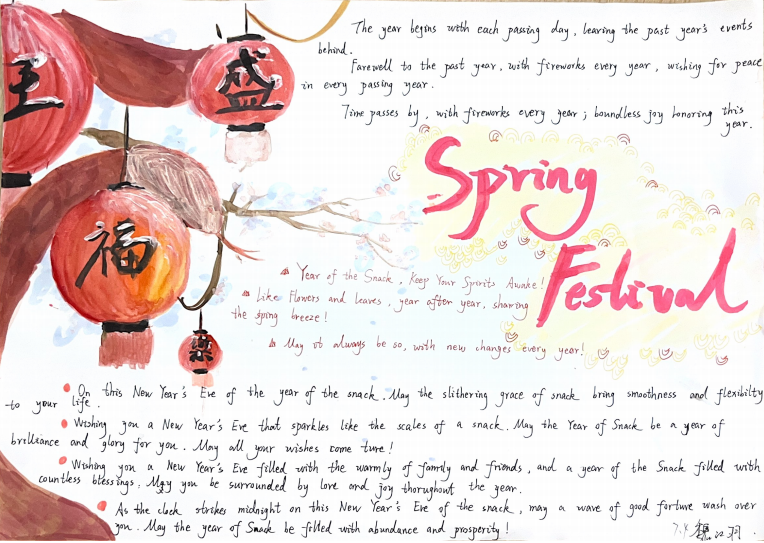 The year begins with each passing day, leaving the past year's events
behind.
Farewell to the past year, with fireworks every year, wishing for peace
in every passing year.
Time passes by, with fireworks every year; boundless joy honoring this
year.
王
盛
福
樂
Spring
Festival
Year of the Snack, Keep Your Spirits Awake!
Like Flowers and leaves, year after year, sharing
the sping breeze!
May it always be so, with new changes every year!
On this New Year's Eve of the year of the snack. May the slithering grace of snack bring smoothness and flexibilty
to your life.
Wishing you a New Year's Eve that sparkles like the scales of a snack. May the Year of Snack be a year of
brilliance and glory for you. May all your wishes come ture!
Wishing you a New Year's Eve filled with the warmly of family and friends, and a year of the Snack filled with
countless blessings. May you be surrounded by love and joy thorughout the year.
As the clock strikes midnight on this New Year's Eve of the snack, may a wave of good fortune wash over
you. May the year of Snack be filled with abundance and prosperity!
7.4